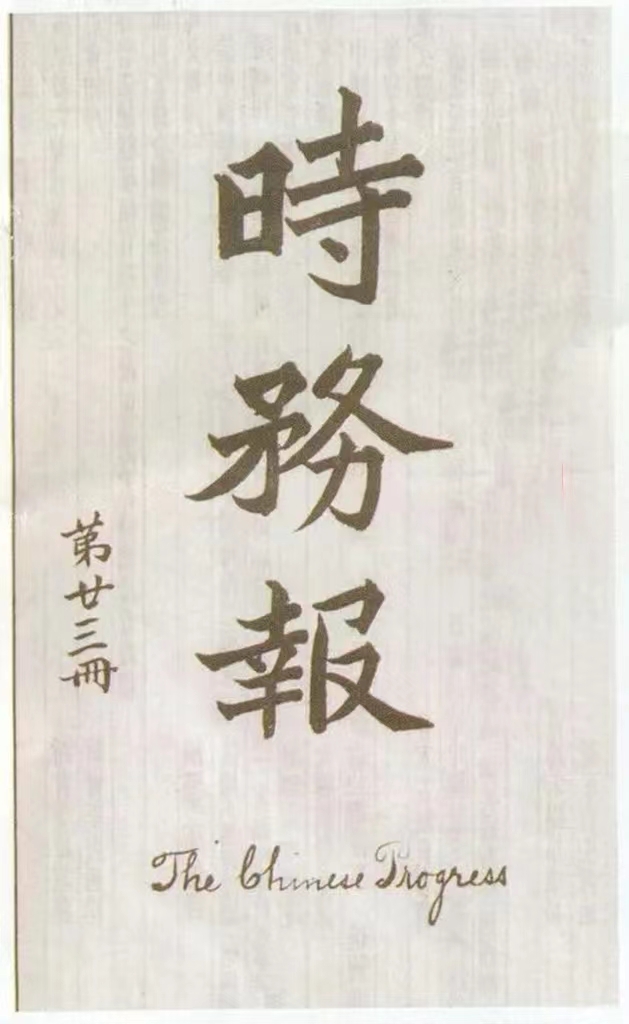 時務報
第廿三冊
The Chinese Progress